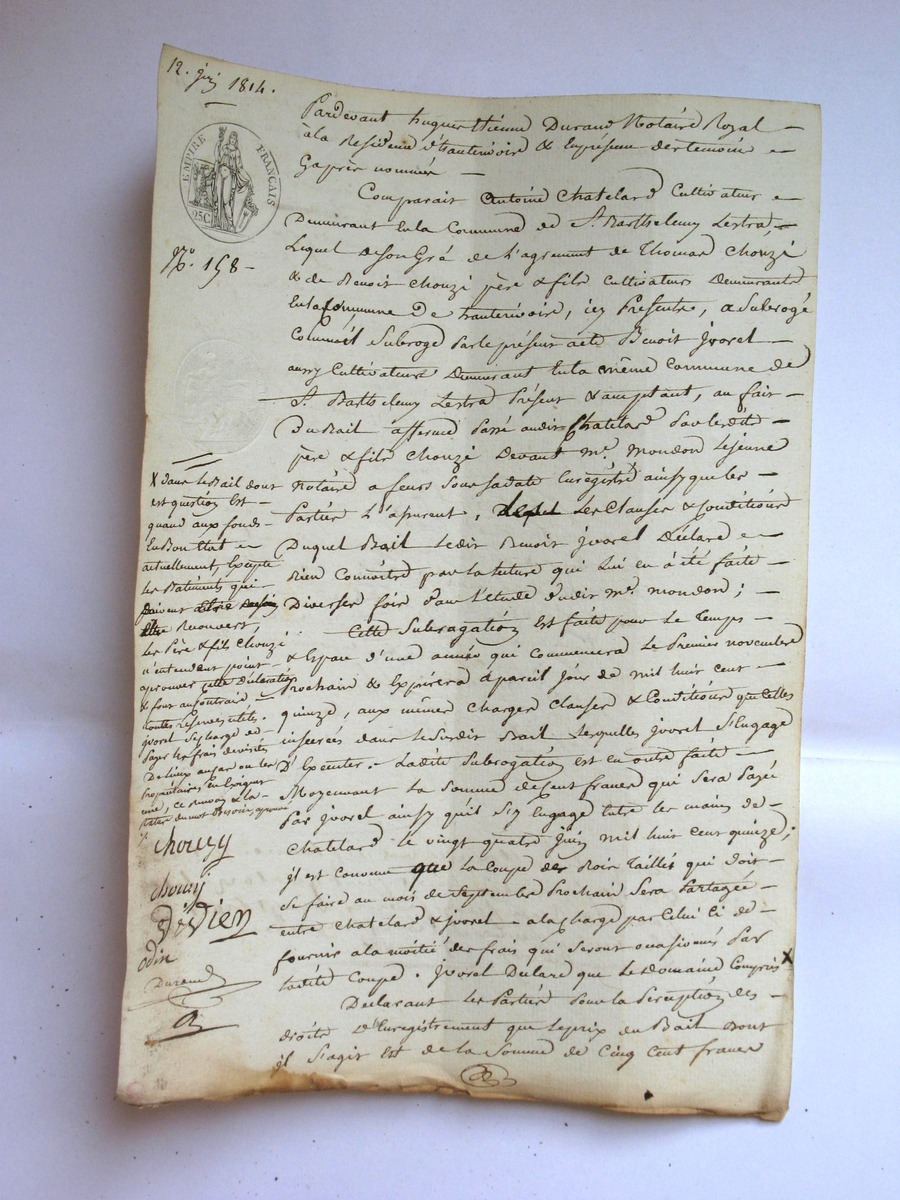 12. juin 1814.
EMPIRE FRANÇAIS
25C
No. 158
Pardevant hugues Etienne Durand Notaire Royal
à la Residence d'hauterivoire & En présence des temoins
Cy après nommés
Comparait Antoine Chatelard Cultivateur
Demeurant En la Commune de St. Barthelemy Lestra,
Lequel de son Gré de l'agrement de Thomas Chouzi
& de Benoit Chouzi père & fils Cultivateurs Demeurants
En la Commune de hauterivoire, icy Présents, a Subrogé
Comme il Subroge Par le présent acte Benoit jvorel
aussy Cultivateur Demeurant En la même Commune de
St. Barthelemy Lestra Présent & acceptant, au fait
Du Bail à fferme Passé audit Chatelard Par lesdits
père & fils Chouzi Devant Me. Mondon Lejeune
Notaire a feurs Sous sa date Enregistré ainsy que les
Parties L'assurent, Les Clauses & Conditions
Duquel Bail Ledit Benoit jvorel Déclare
Bien Connoitre par la lecture qui Lui en à été faite
Diverses fois dans L'etude dudit Me. mondon;
Cette Subrogation Est faite pour le Temps
& Espace d'une année qui Commencera Le Premier novembre
Prochain & Expirera à pareil jour de mil huit cent
quinze, aux mêmes Charges Clauses & Conditions que Celles
inserées dans le Susdit Bail Lesquelles jvorel S'Engage
D'Executer. Ladite Subrogation est en outre faite
Moyennant La Somme de Cent francs qui Sera Payé
Par jvorel ainsy qu'il S'y Engage Entre les mains de
Chatelard le vingt quatre juin mil huit cent quinze;
il est Convenu que la Coupe des Bois Taillis qui doit
Se faire au mois de Septembre Prochain Sera Partagée
entre Chatelard & jvorel à la Charge par Celui Ci de
fournir a la moitié des frais qui Seront ocasionnés Par
Ladite Coupe. jvorel Déclare que Le Domaine Compris X
Declarant les Parties Pour la Perception des
droits D'Enregistrement que le prix du Bail Dont
il S'agit Est de la Somme de Cinq Cent francs
X dans Le Bail dont
est question Est
quand aux fonds
En Bon Etat
actuellement, Excepté
Les Batiments qui
Recouvert
Les Père & fils Chouzi
n'entendent point
aprouver Cette Déclaration
& font au Contraire
toutes réserves utiles.
jvorel Se Charge de
Payer les frais de visites
De Lieux au cas ou les
Propriétaires En Exigent
une, ce renvoy & la
rature du mot aprouvé
Chouzy
Chouzy
Dédien
odin
Durand